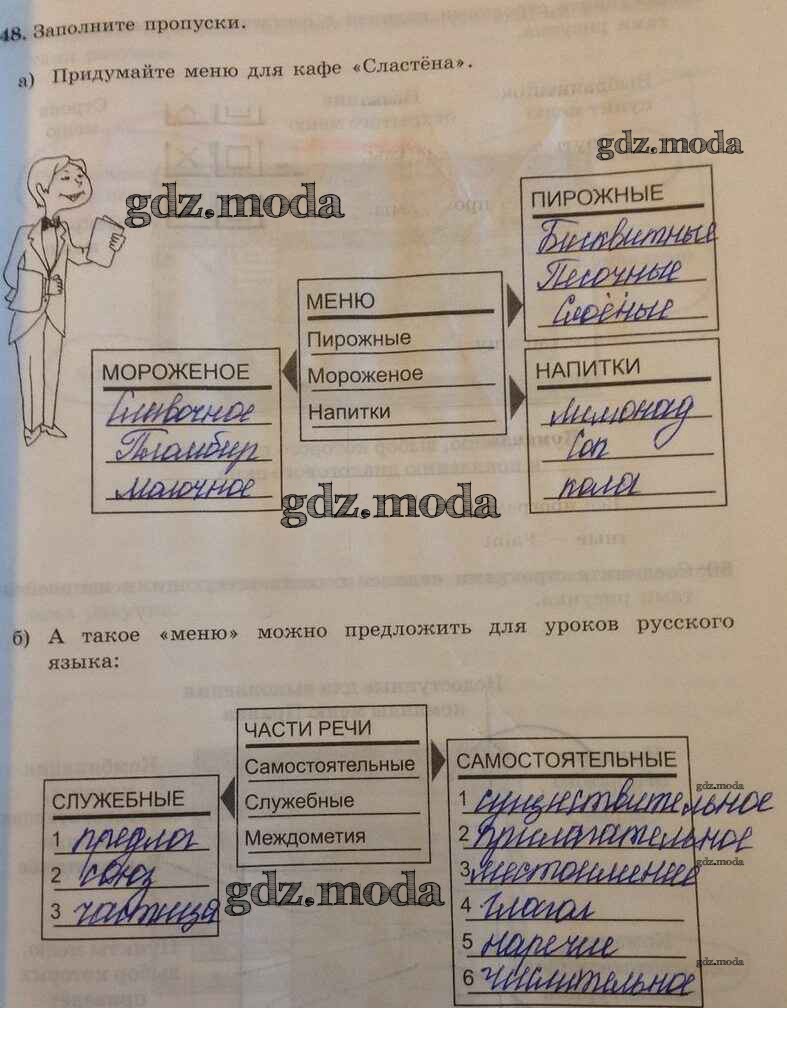 48. Заполните пропуски.
а) Придумайте меню для кафе «Сластёна».
gdz.moda
gdz.moda
ПИРОЖНЫЕ
Бисквитные
Песочные
Слоёные
МЕНЮ
Пирожные
Мороженое
Напитки
МОРОЖЕНОЕ
Сливочное
Пломбир
молочное
НАПИТКИ
лимонад
Сок
кола
gdz.moda
б) А такое «меню» можно предложить для уроков русского
языка:
ЧАСТИ РЕЧИ
Самостоятельные
Служебные
Междометия
СЛУЖЕБНЫЕ
1 предлог
2 союз
3 частица
gdz.moda
САМОСТОЯТЕЛЬНЫЕ
gdz.moda
1 существительное
2 прилагательное
3 местоимение
gdz.moda
4 глагол
5 наречие
gdz.moda
6 числительное